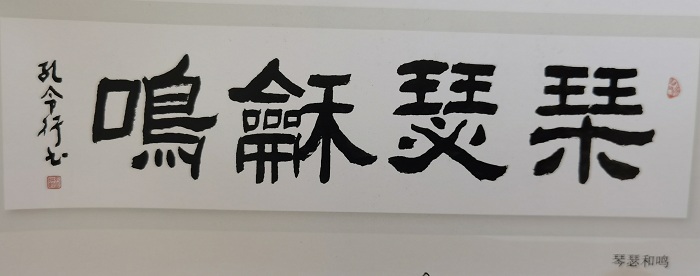 琹瑟龢鳴
孔令行书
琴瑟和鸣